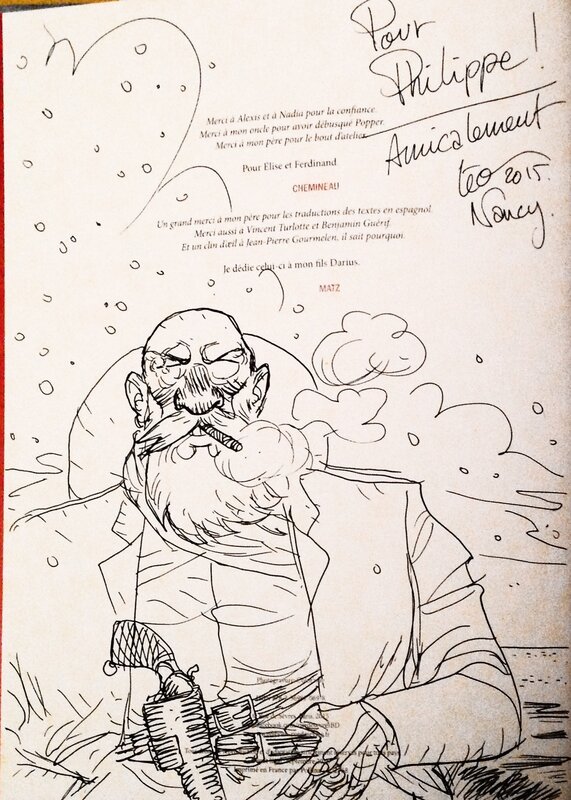 Pour
Philippe !
Amicalement
Léo 2015.
Nancy.
Merci à Alexis et à Nadia pour la confiance.
Merci à mon oncle pour avoir débusqué Popper.
Merci à mon père pour le bout d'atelier.
Pour Élise et Ferdinand
CHEMINEAU
Un grand merci à mon père pour les traductions des textes en espagnol.
Merci aussi à Vincent Turlotte et Benjamin Guérif.
Et un clin d'œil à Jean-Pierre Gourmelen, il sait pourquoi.
Je dédie celui-ci à mon fils Darius.
MATZ
Photogravure
pays
Imprimé en France par